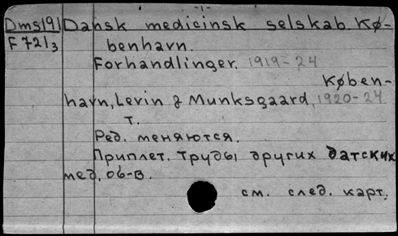 Dms191 Dansk medicinsk selskab. Kø-
F721/3 benhavn.
Forhandlinger. 1919-24
Køben-
havn, Levin & Munksgaard, 1920-24
т.
Ред. меняются.
Приплет. труды других датских
мед. об-в.
см. след. карт.